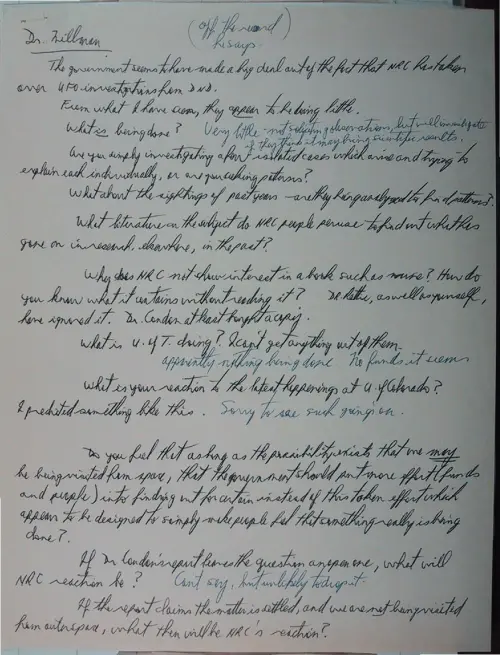 (off the record)
he says
Dr. Millman
The government seems to have made a big deal out of the fact that NRC has taken
over UFO investigations from DND.
From what I have seen, they appear to be doing little.
What is being done? Very little - not soliciting observations, but will investigate
if they think it may bring scientific results.
Are you simply investigating a few isolated cases which arise and trying to
explain each individually, or are you seeking patterns?
What about the sightings of past years - are they being analysed to find patterns?
What literature on the subject do NRC people peruse to find out what has
gone on in research elsewhere, in the past?
Why does NRC not show interest in a book such as mine? How do
you know what it contains without reading it? Dr. as well as yourself,
have ignored it. Dr. Condon at least bought a copy.
What is U. of T. doing? I can't get anything out of them.
apparently nothing being done No funds it seems
What is your reaction to the latest happenings at U. of Colorado?
I predicted something like this. Sorry to see such goings on.
Do you feel that as long as the possibility exists that we may
be being visited from space, that the government should put more effort (funds
and people) into finding out for certain instead of this token effort which
appears to be designed to simply make people feel that something really is being
done?
If Dr. Condon's report leaves the question an open one, what will
NRC reaction be? Can't say, but unlikely to drop it.
If the report claims the matter is settled, and we are not being visited
from outer space, what then will be NRC's reaction?